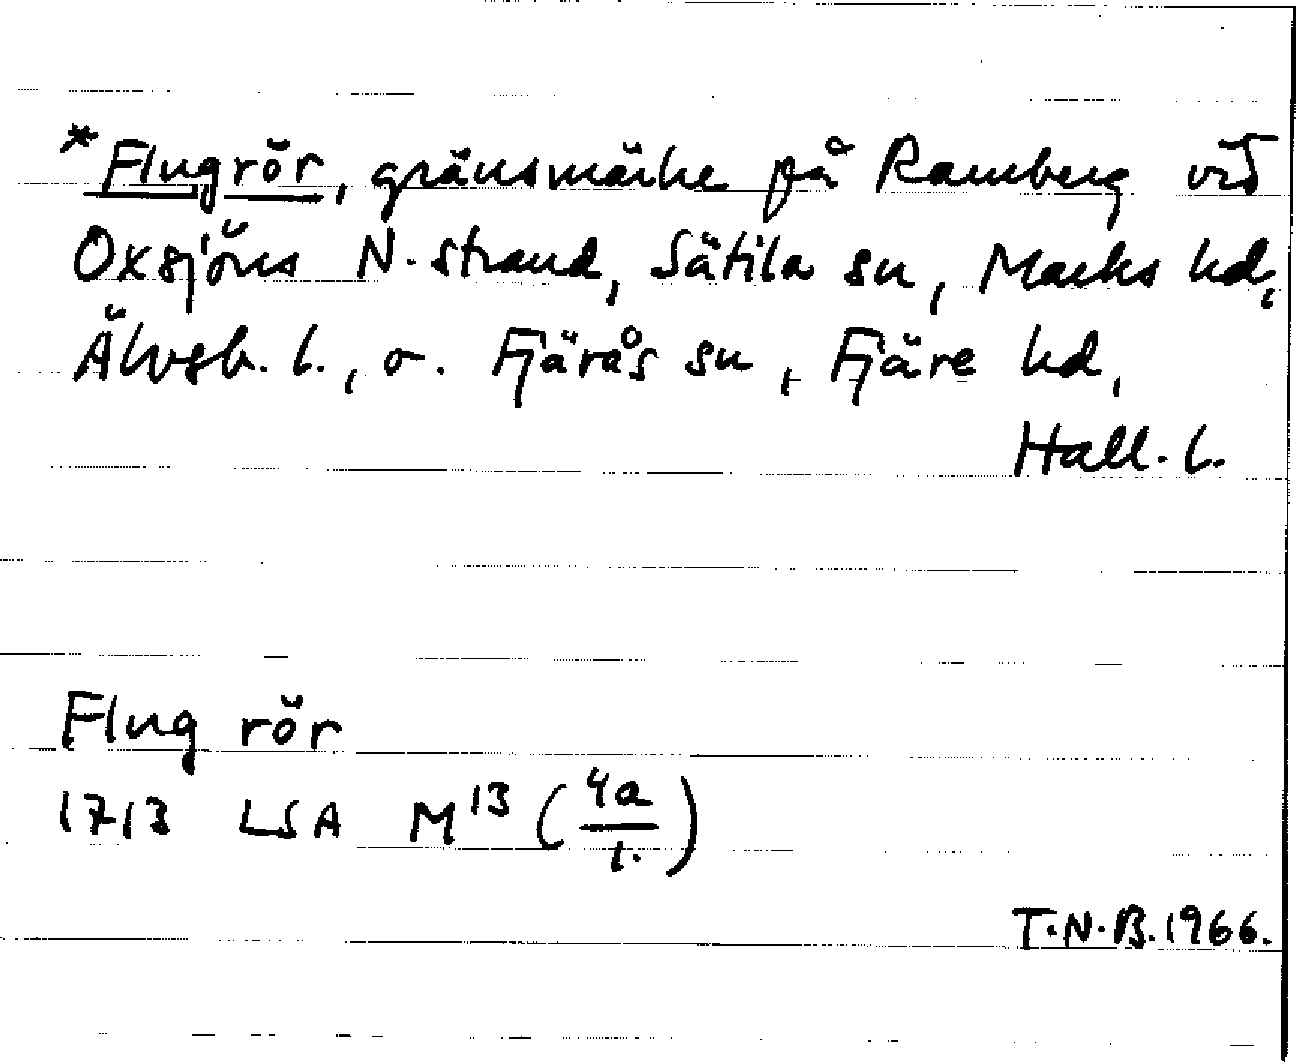 *Flugrör, gränsmärke på Ramberg vid
Oxsjöns N. strand, Sätila sn, Marks hd,
Älvsb. l., o. Fjärås sn, Fjäre hd,
Hall. l.
Flug rör
1713 LSA M¹³ (4a/1.)
T.N.B. 1966.